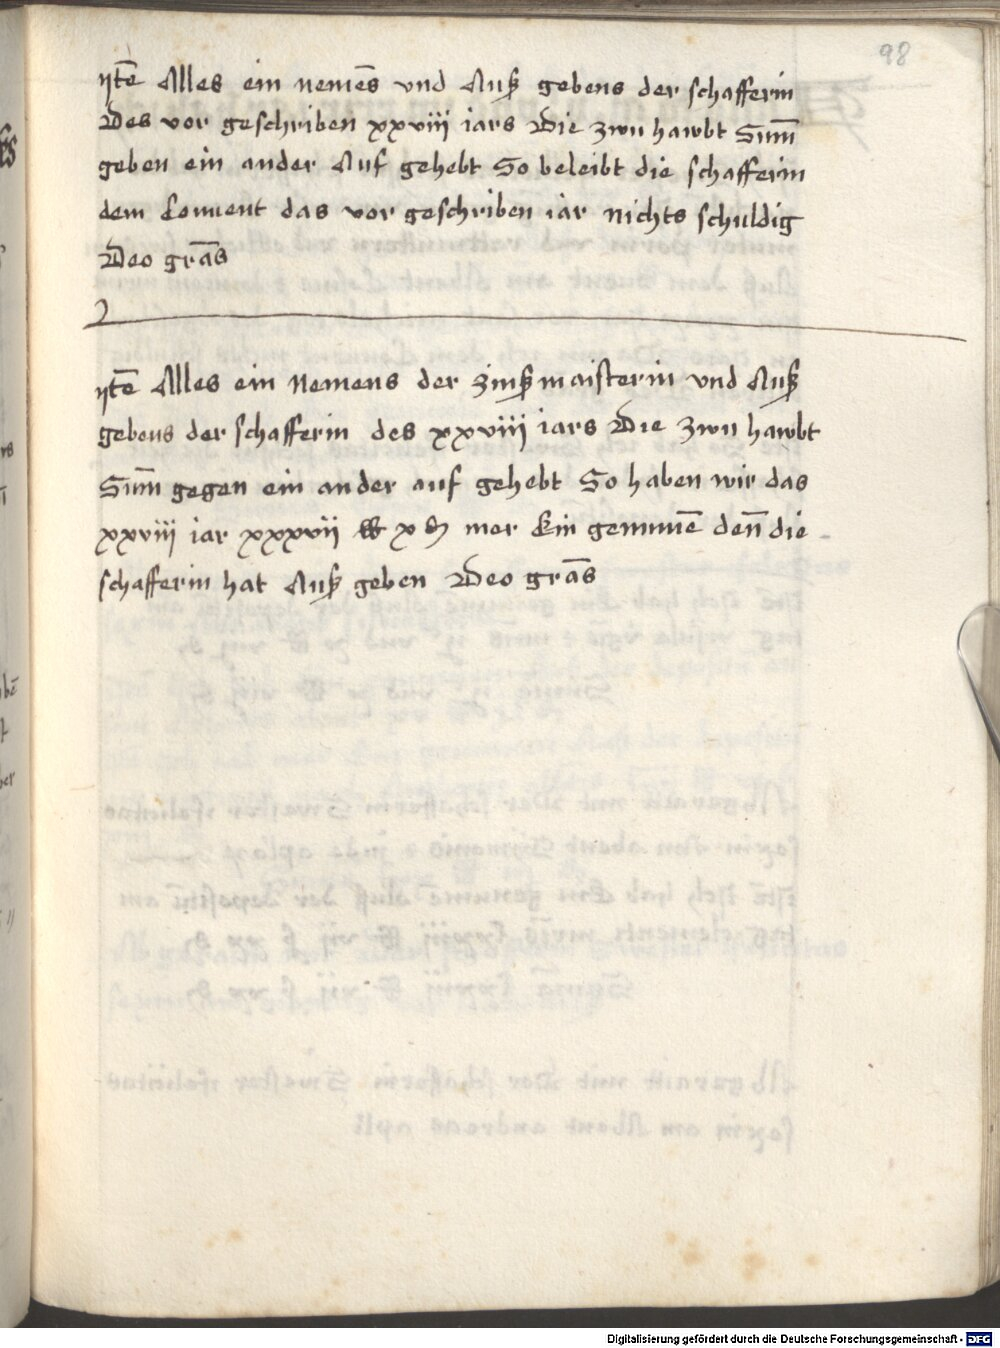 98
Jtē Alles ein nemēs vnd Auß gebens der schafferin
Des vor geschriben xxviij iars Die zwu hawbt Sum̄
geben ein ander Auf gehebt So beleibt die schafferin
dem Conuent das vor geschriben iar nichts schuldig
Deo grās
Jtē Alles ein Nemens der zinßmaisterin vnd Auß
gebens der schafferin des xxviij iars Die zwu hawbt
Sum̄ gegen ein ander auf gehebt So haben wir das
xxviij iar xxxvij ℔ x ₰ mer Ein genumē den̄ die
schafferin hat Auß geben Deo grās
Digitalisierung gefördert durch die Deutsche Forschungsgemeinschaft - DFG